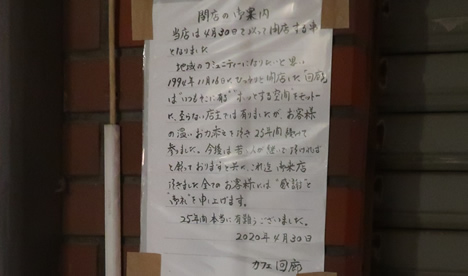 閉店の御案内
当店は4月30日を以って閉店する事
となりました
地域のコミュニティーになりたいと思い
1994年11月18日にひっそりと開店した"回廊"
は"いつもそこに有る""ほっとする空間をモットーに
至らない店主では有りましたが、お客様
の温いお力添えを頂き25年間続いて
参りました。今後は昔
と願っております と共に、これ迄御来店
頂きました全てのお客様には"感謝"と
"お礼"を申し上げます。
25年間本当に有難うございました。
2020年4月30日
カフェ 回廊